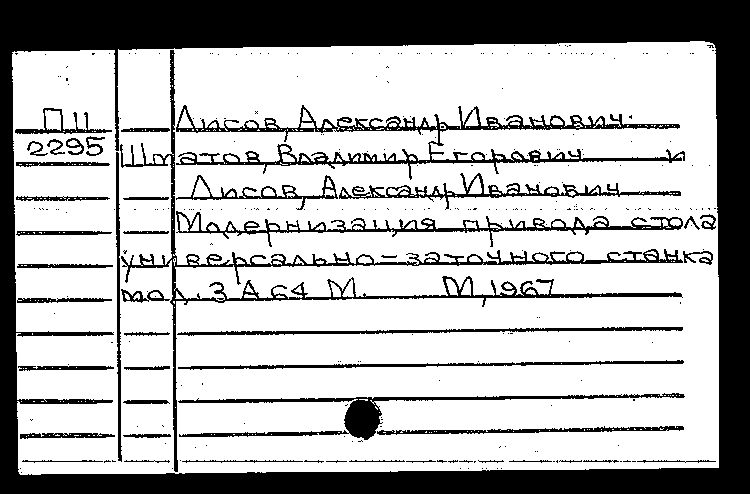 П 11 Лисов, Александр Иванович.
2295 Шматов, Владимир Егорович и
Лисов, Александр Иванович
Модернизация привода стола
универсально-заточного станка
мод. 3 А 64 М. М, 1967